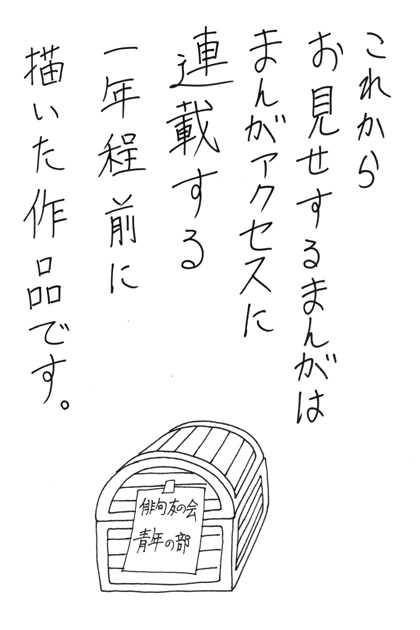 これから
お見せするまんがは
まんがアクセスに
連載する
一年程前に
描いた作品です。
俳句友の会
青年の部